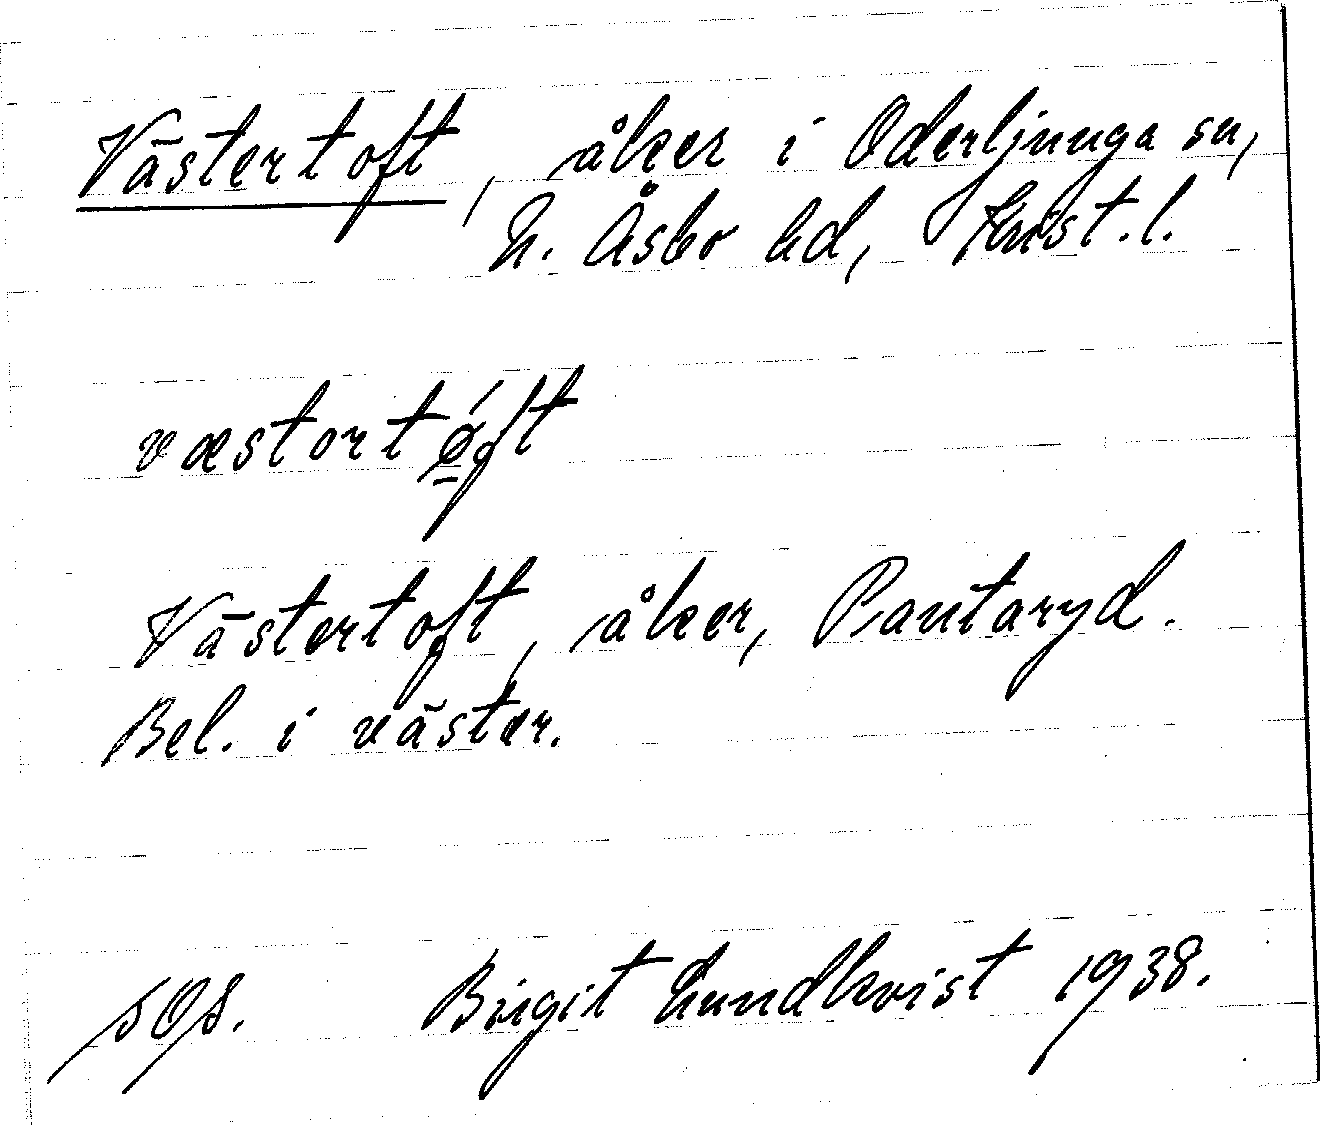 Västertoft, åker i Oderljunga sn,
N. Åsbo hd, Krist. l.
væstortǿft
Västertoft, åker, Pantaryd.
Bel. i väster.
Birgit Lundkvist 1938.